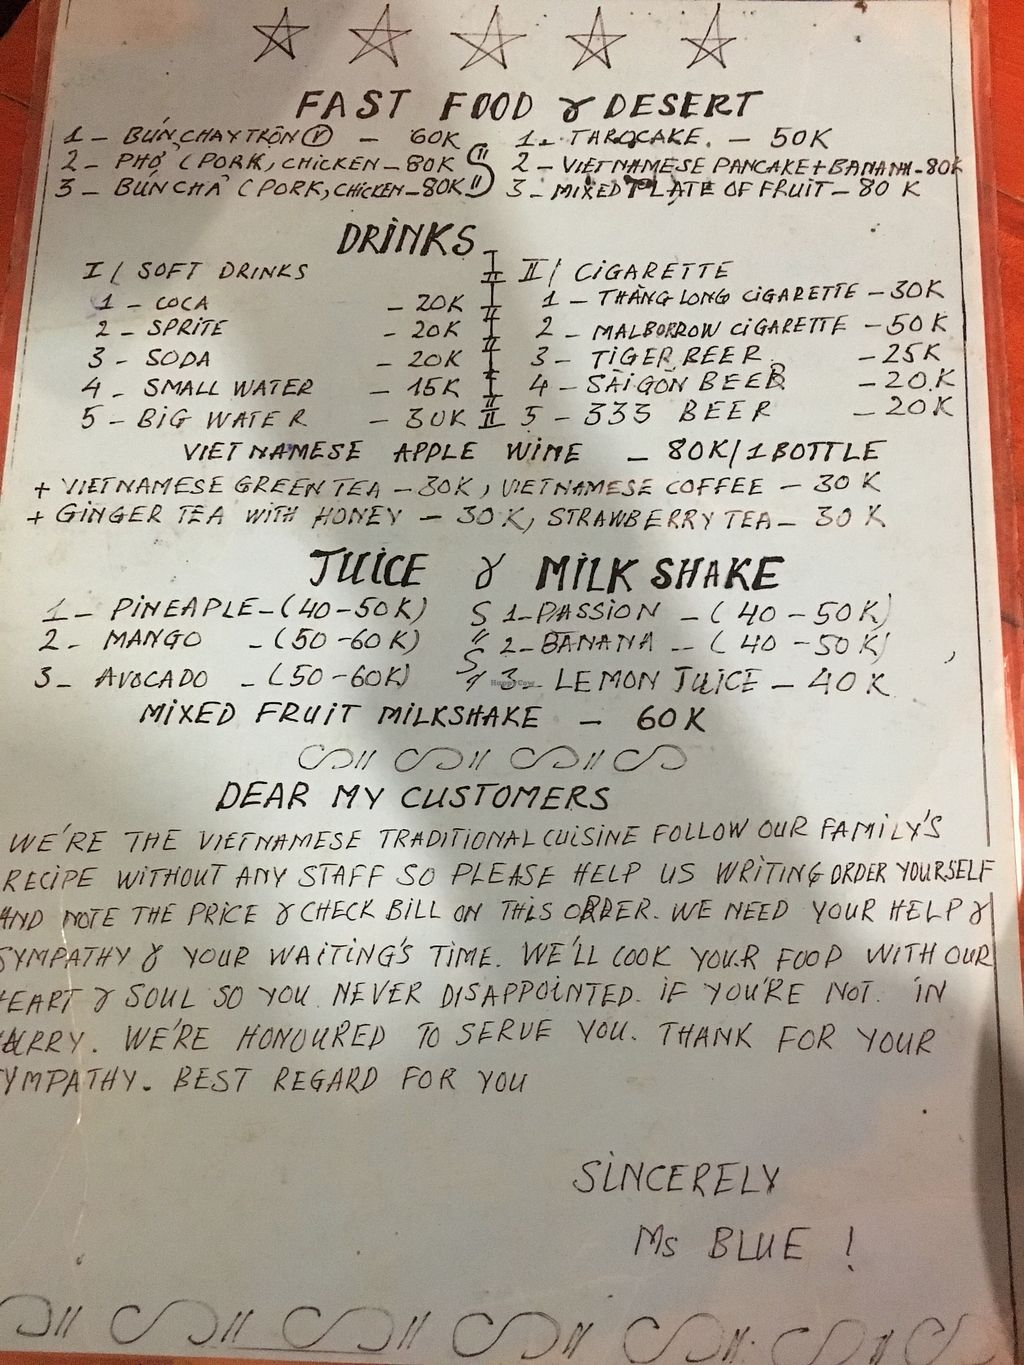 FAST FOOD & DESERT
1 - BÚN CHAY TRỘN Ⓥ - 60K 1 - TAROCAKE. - 50K
2 - PHỞ (PORK, CHICKEN - 80K 2 - VIETNAMESE PANCAKE + BANANA - 80K
3 - BÚN CHẢ (PORK, CHICKEN - 80K 3 - MIXED PLATE OF FRUIT - 80K
DRINKS
I / SOFT DRINKS II / CIGARETTE
1 - COCA - 20K 1 - THĂNG LONG CIGARETTE - 30K
2 - SPRITE - 20K 2 - MALBORROW CIGARETTE - 50K
3 - SODA - 20K 3 - TIGER BEER. - 25K
4 - SMALL WATER - 15K 4 - SÀI GÒN BEER - 20.K
5 - BIG WATER - 30K 5 - 333 BEER - 20K
VIETNAMESE APPLE WINE - 80K/1BOTTLE
+ VIETNAMESE GREEN TEA - 30K, VIETNAMESE COFFEE - 30K
+ GINGER TEA WITH HONEY - 30K, STRAWBERRY TEA - 30K
JUICE & MILK SHAKE
1 - PINEAPLE - (40-50K) 1 - PASSION - (40-50K)
2 - MANGO - (50-60K) 2 - BANANA - (40-50K)
3 - AVOCADO - (50-60K) 3 - LEMON JUICE - 40K
HappyCow
MIXED FRUIT MILKSHAKE - 60K
DEAR MY CUSTOMERS
WE'RE THE VIETNAMESE TRADITIONAL CUISINE FOLLOW OUR FAMILY'S
RECIPE WITHOUT ANY STAFF SO PLEASE HELP US WRITING ORDER YOURSELF
AND NOTE THE PRICE & CHECK BILL ON THIS ORDER. WE NEED YOUR HELP &
SYMPATHY & YOUR WAITING'S TIME. WE'LL COOK YOUR FOOD WITH OUR
HEART & SOUL SO YOU NEVER DISAPPOINTED. IF YOU'RE NOT IN
HURRY. WE'RE HONOURED TO SERVE YOU. THANK FOR YOUR
SYMPATHY. BEST REGARD FOR YOU
SINCERELY
Ms BLUE !